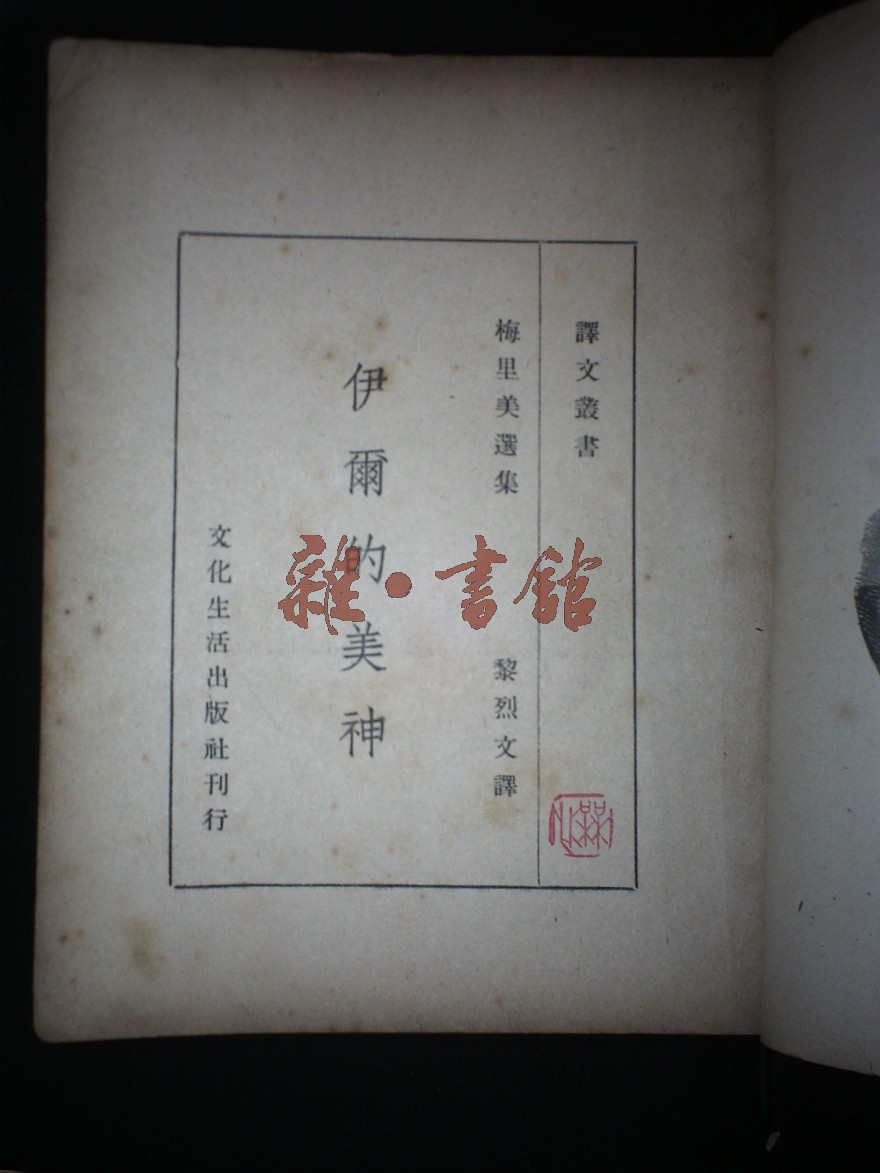 譯文叢書
梅里美選集
黎烈文譯
伊爾的美神
文化生活出版社刊行
雜·書館